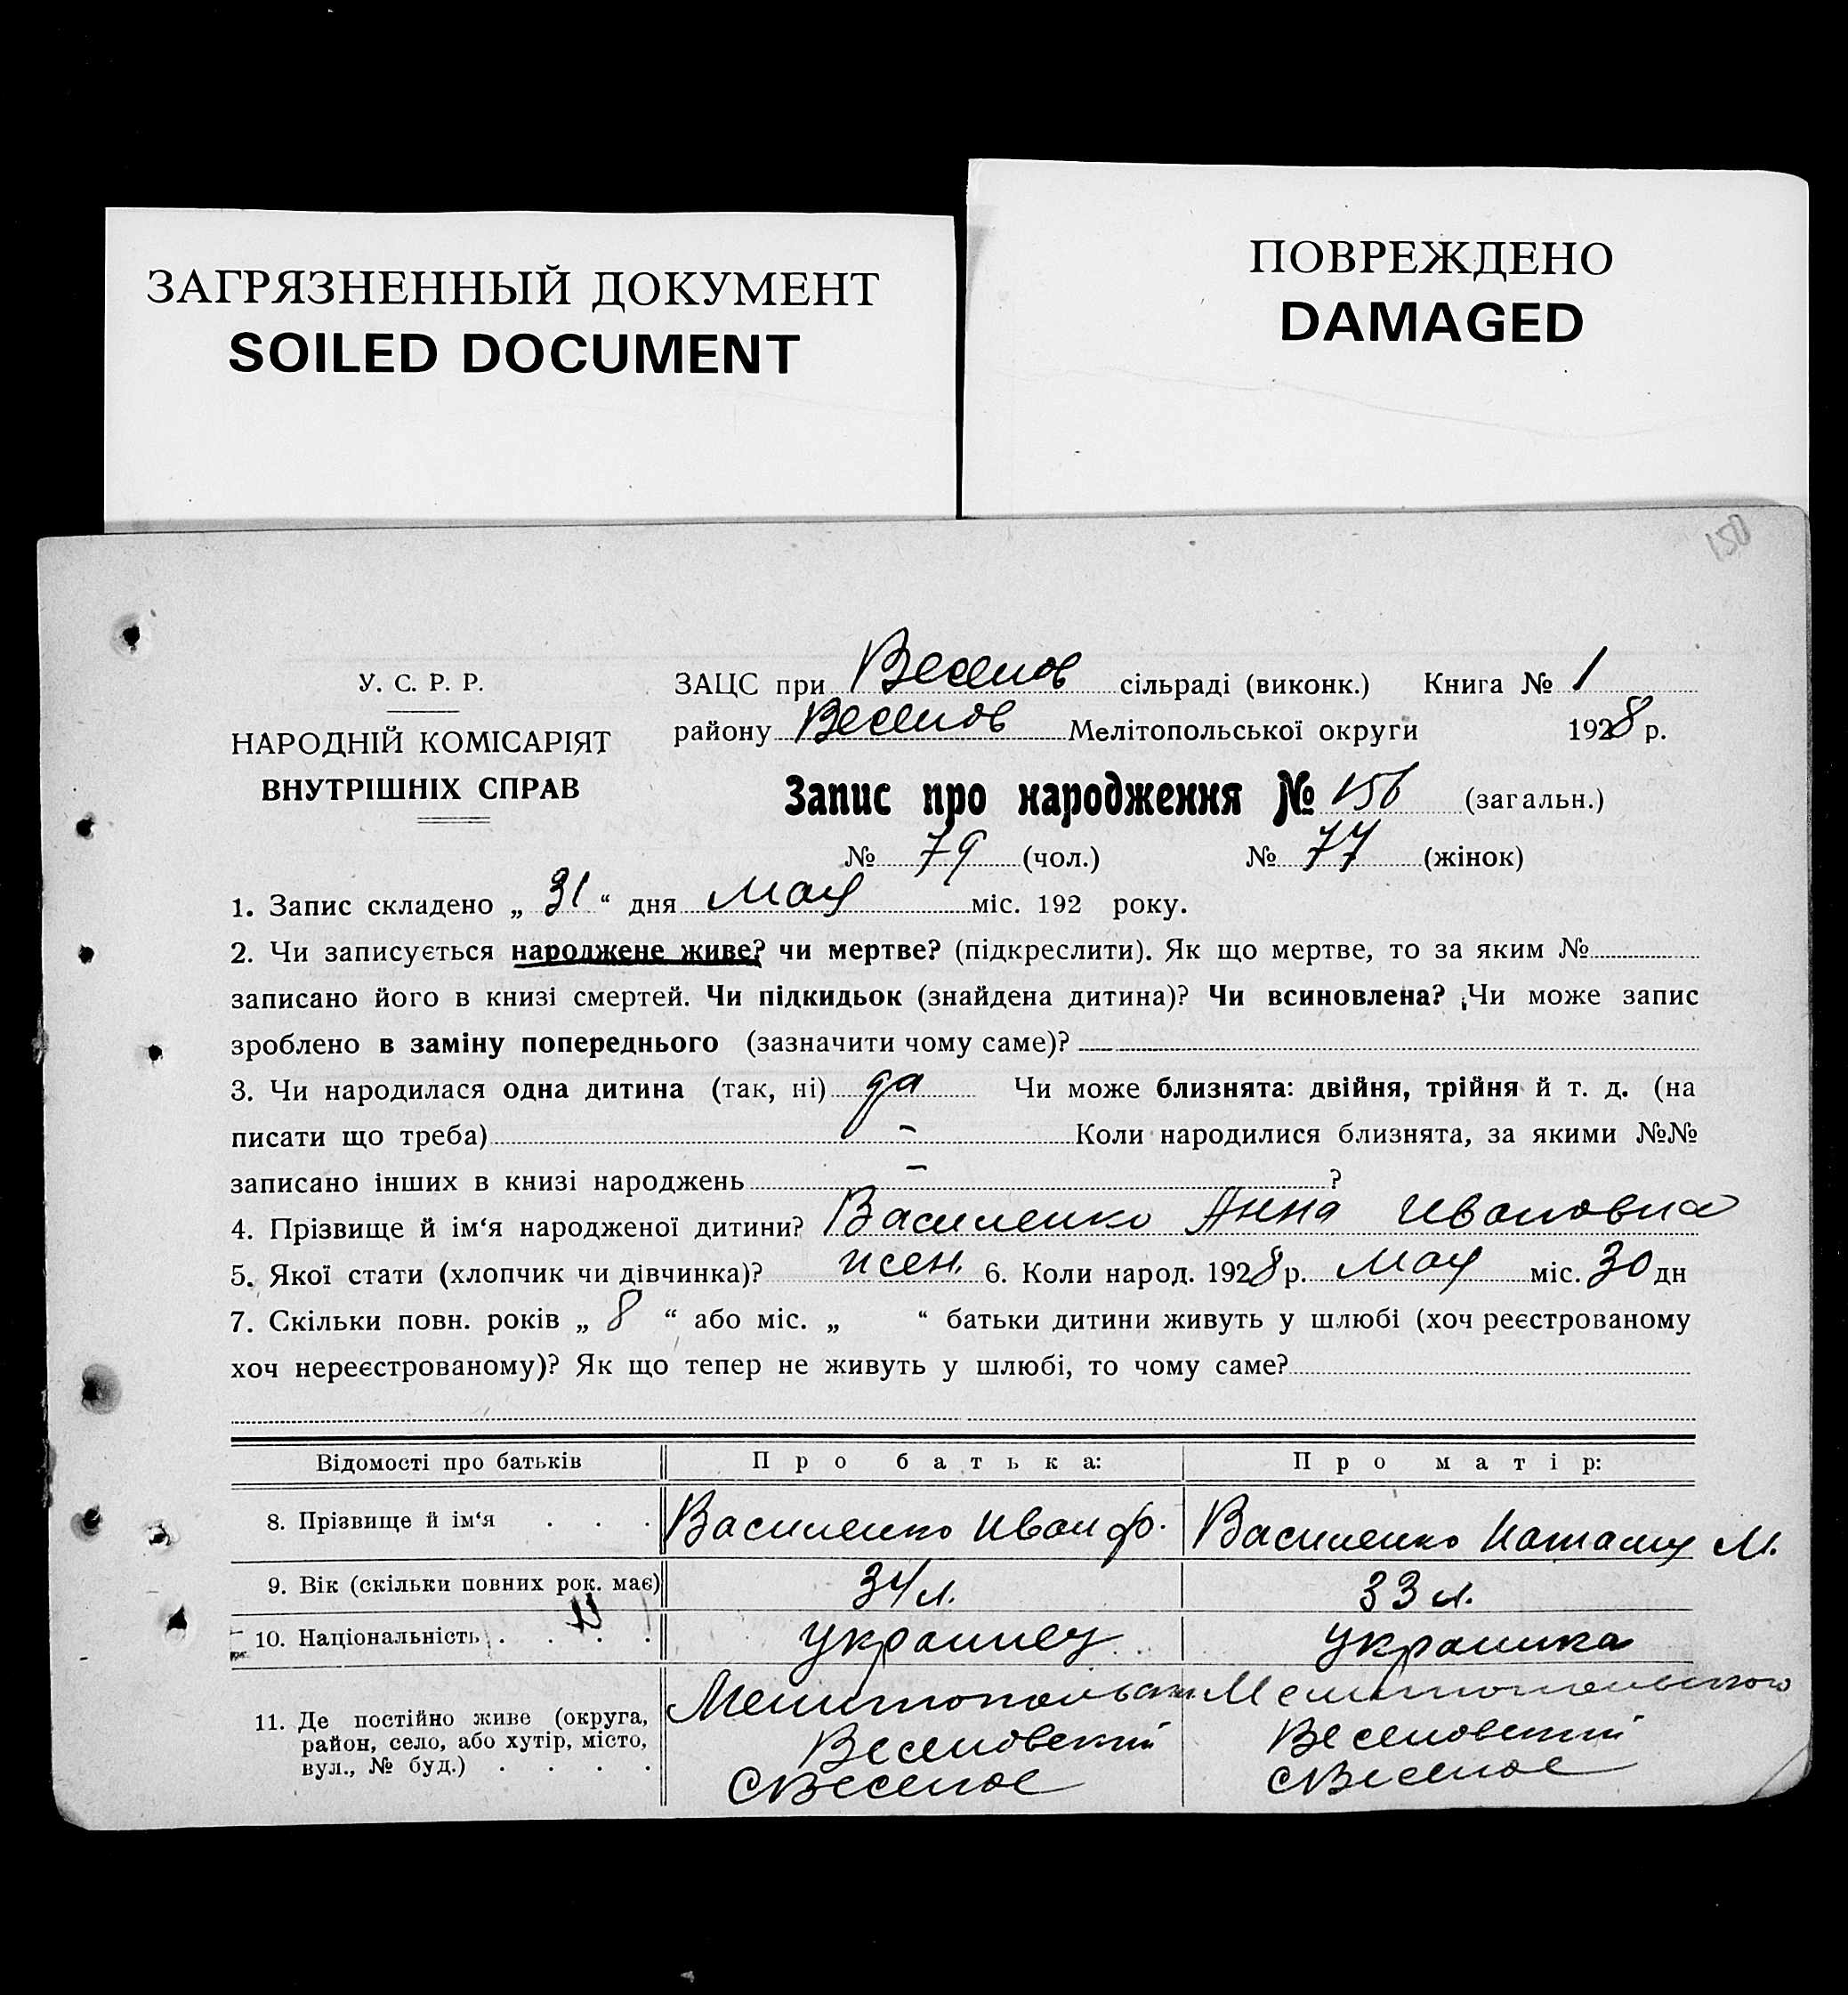 ЗАГРЯЗНЕННЫЙ ДОКУМЕНТ
SOILED DOCUMENT
ПОВРЕЖДЕНО
DAMAGED
150
У. С. Р. Р.
НАРОДНІЙ КОМІСАРІЯТ
ВНУТРІШНІХ СПРАВ
ЗАЦС при Веселов сільраді (виконк.) Книга № 1
району Веселов Мелітопольської округи 1928 р.
Запис про народження № 156 (загальн.)
№ 79 (чол.) № 77 (жінок)
1. Запис складено „ 31 “ дня мая міс. 192 року.
2. Чи записується народжене живе? чи мертве? (підкреслити). Як що мертве, то за яким №
записано його в книзі смертей. Чи підкидьок (знайдена дитина)? Чи всиновлена? Чи може запис
зроблено в заміну попереднього (зазначити чому саме)?
3. Чи народилася одна дитина (так, ні) да Чи може близнята: двійня, трійня й т. д. (на
писати що треба) – Коли народилися близнята, за якими №№
записано інших в книзі народжень – ?
4. Прізвище й ім‘я народженої дитини? Василенко Анна Ивановна
5. Якої стати (хлопчик чи дівчинка)? жен. 6. Коли народ. 1928 р. мая міс. 30 дн
7. Скільки повн. років „ 8 “ або міс. „ “ батьки дитини живуть у шлюбі (хоч реєстрованому
хоч нереєстрованому)? Як що тепер не живуть у шлюбі, то чому саме?
Відомості про батьків Про батька: Про матір:
8. Прізвище й ім‘я . . . Василенко Иван Ф. Василенко Наталия М.
9. Вік (скільки повних рок. має) 34 л. 33 л.
10. Національність . . . . украинец украинка
11. Де постійно живе (округа,
район, село, або хутір, місто,
вул., № буд.) . . . .
Веселовский
С Веселое
Мелитопольского
Веселовский
С Веселое